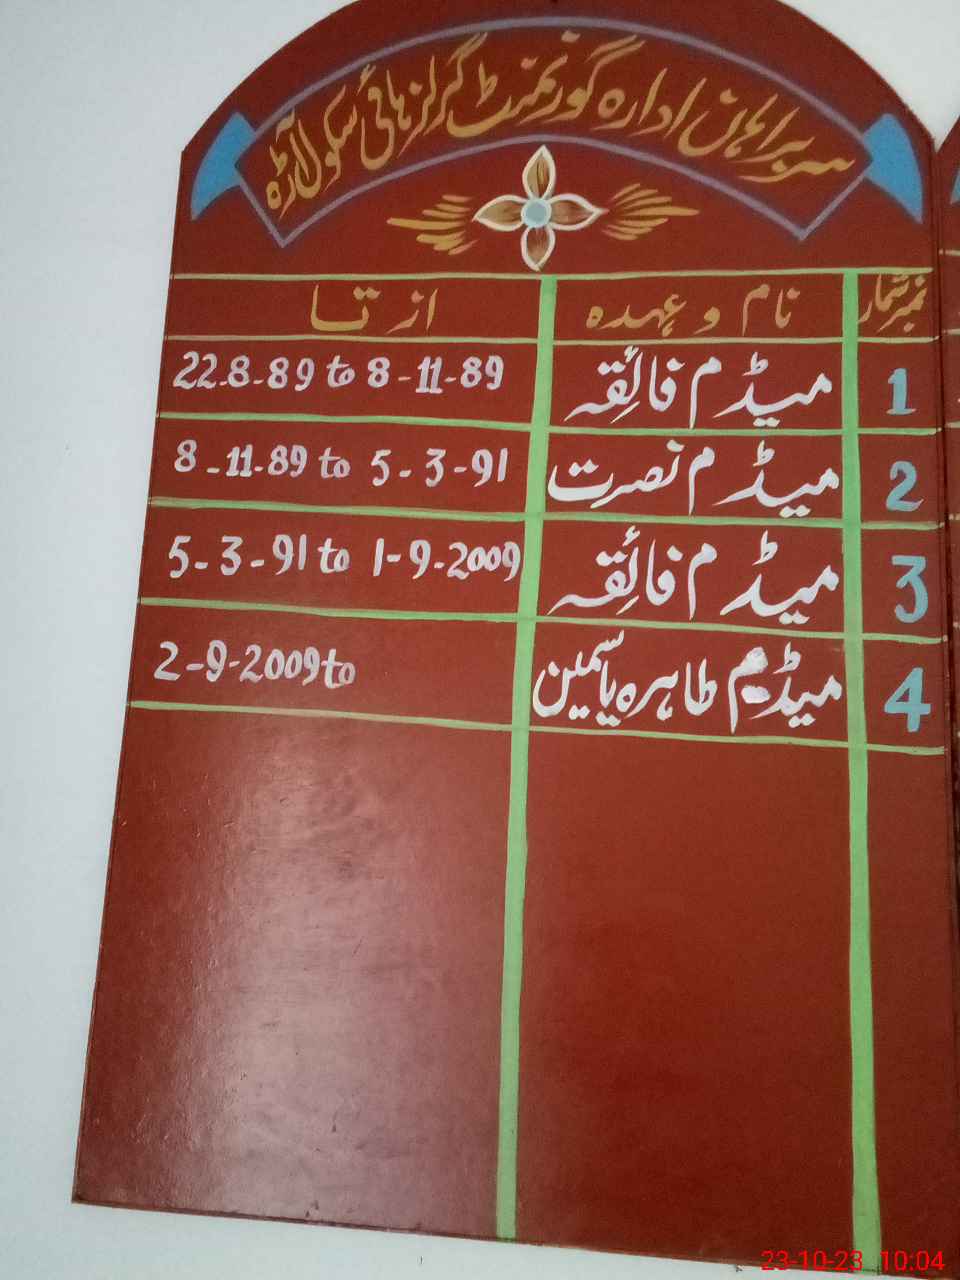 سربراہان ادارہ گورنمنٹ گرلز ہائی سکول آڑہ
نمبر شمار نام و عہدہ از تا
1 میڈم فائقہ 22.8-89 to 8-11-89
2 میڈم نصرت 8-11-89 to 5-3-91
3 میڈم فائقہ 5-3-91 to 1-9-2009
4 میڈیم طاہرہ یاسمین 2-9-2009 to
23-10-23 10:04